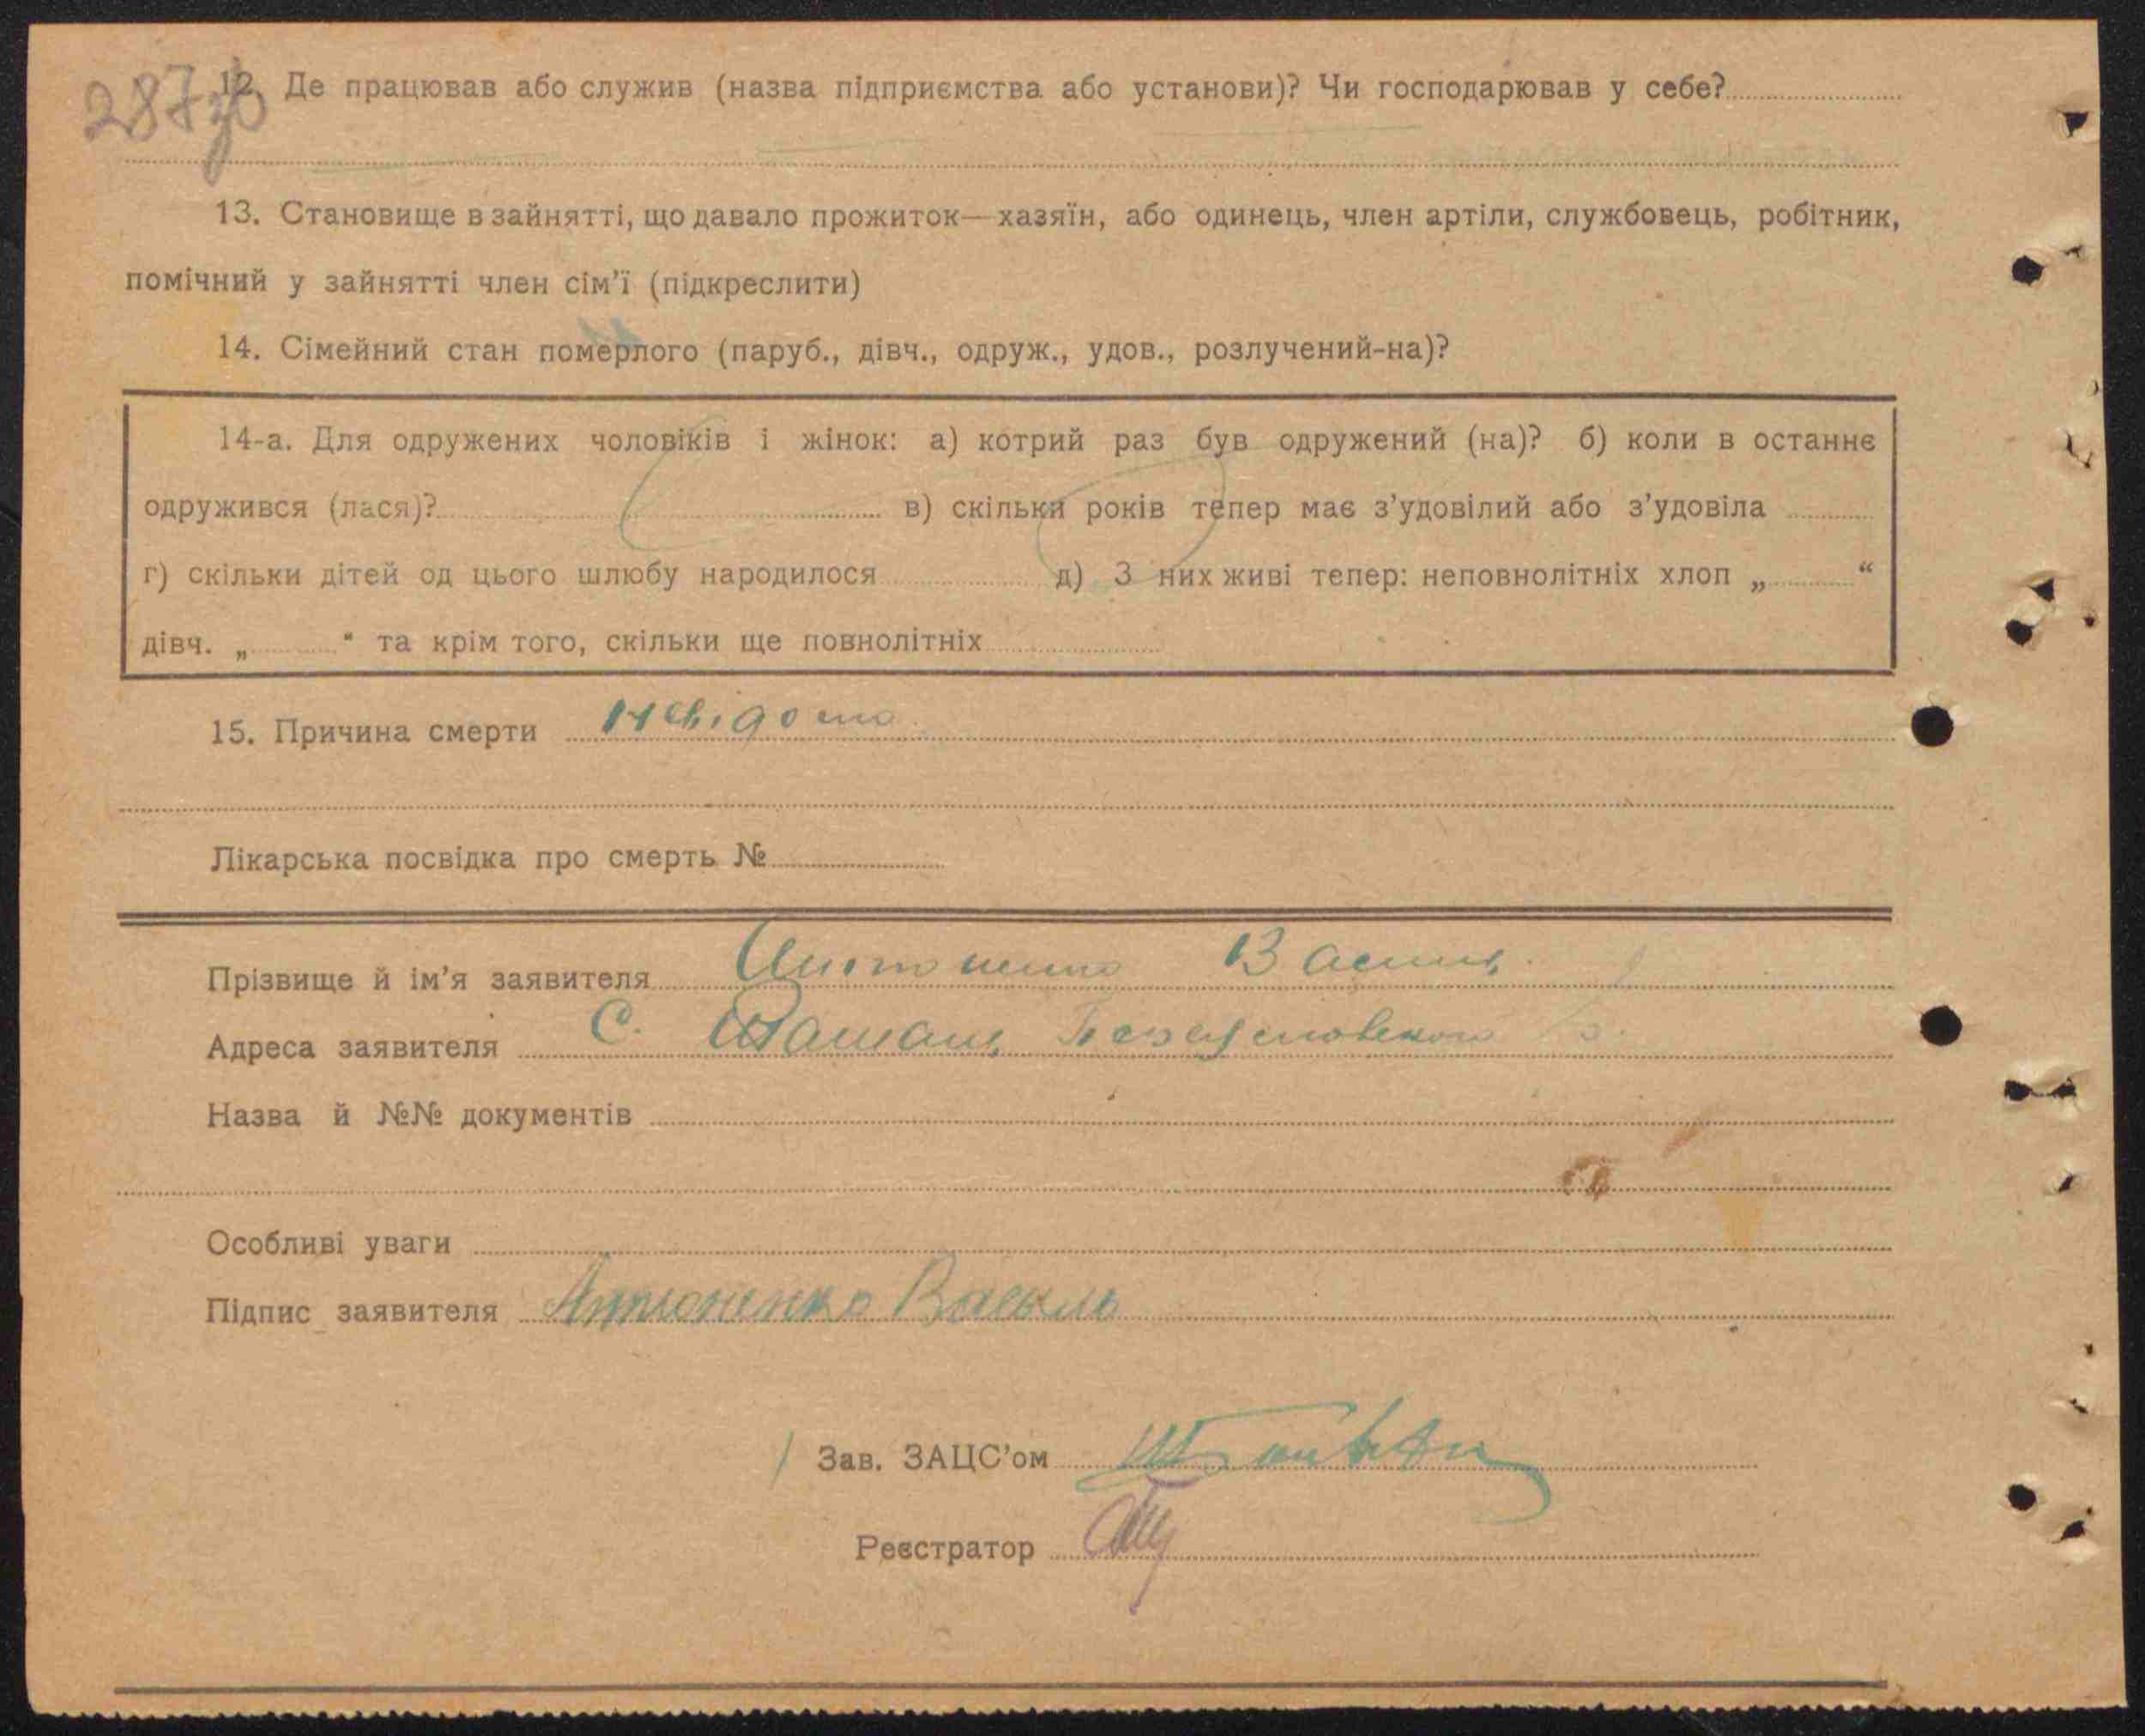 287зв
12. Де працював або служив (назва підприємства або установи)? Чи господарював у себе?
13. Становище в зайнятті, що давало прожиток—хазяїн, або одинець, член артіли, службовець, робітник,
помічний у зайнятті член сім'ї (підкреслити)
14. Сімейний стан померлого (паруб., дівч., одруж., удов., розлучений-на)?
14-а. Для одружених чоловіків і жінок: а) котрий раз був одружений (на)? б) коли в останнє
одружився (лася)? в) скільки років тепер має з'удовілий або з'удовіла
г) скільки дітей од цього шлюбу народилося д) З них живі тепер: неповнолітніх хлоп „ “
дівч. „ “ та крім того, скільки ще повнолітніх
15. Причина смерти невідома.
Лікарська посвідка про смерть №
Прізвище й ім'я заявителя Антоненко Василь
Адреса заявителя С.
Назва й №№ документів
Особливі уваги
Підпис заявителя Антоненко Василь
Зав. ЗАЦС'ом
Реєстратор